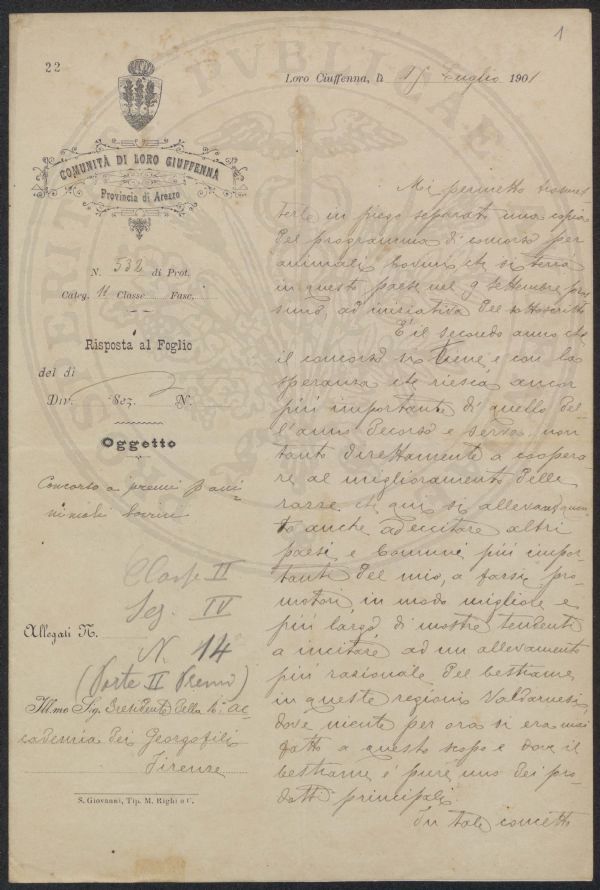 1
22
Loro Ciuffenna, li 15 Luglio 1901
COMUNITÀ DI LORO CIUFFENNA
Provincia di Arezzo
N. 532 di Prot.
Categ. 11 Classe Fasc.
Risposta al Foglio
del dì
Div. Sez. N.
Oggetto
Concorso a premi p ani-
mali bovini
Classe II
Seg. IV
Allegati N.
N. 14
(Parte II Premi)
Ill.mo Sig. Presidente della R. Ac-
cademia dei Georgofili
Firenze
S. Giovanni, Tip. M. Righi e C.
Mi permetto trasmet
terle in piego separato una copia
del programma di concorso per
animali bovini che si terrà
in questo paese nel 9 settembre pros
simo, ad iniziativa del sottoscritto
È il secondo anno che
il concorso si tiene, e con la
speranza che riesca ancor
più importante di quello del
l'anno decorso e serva non
tanto direttamente a coopera
re al miglioramento delle
razze che qui si allevano quan
to anche ad eccitare altri
paesi e Comuni più impor
tanti del mio, a farsi pro
motori, in modo migliore e
più largo di mostre tendenti
a incitare ad un allevamento
più razionale del bestiame
in queste regioni Valdarnesi,
dove niente per ora si era mai
fatto a questo scopo e dove il
bestiame è pure uno dei pro
dotti principali.
In tale concetto